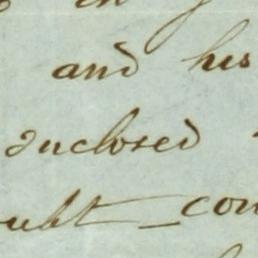 and his
inclosed
oubt con